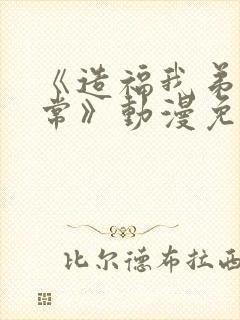 《造福我弟
常》動漫免
比尔德布拉西